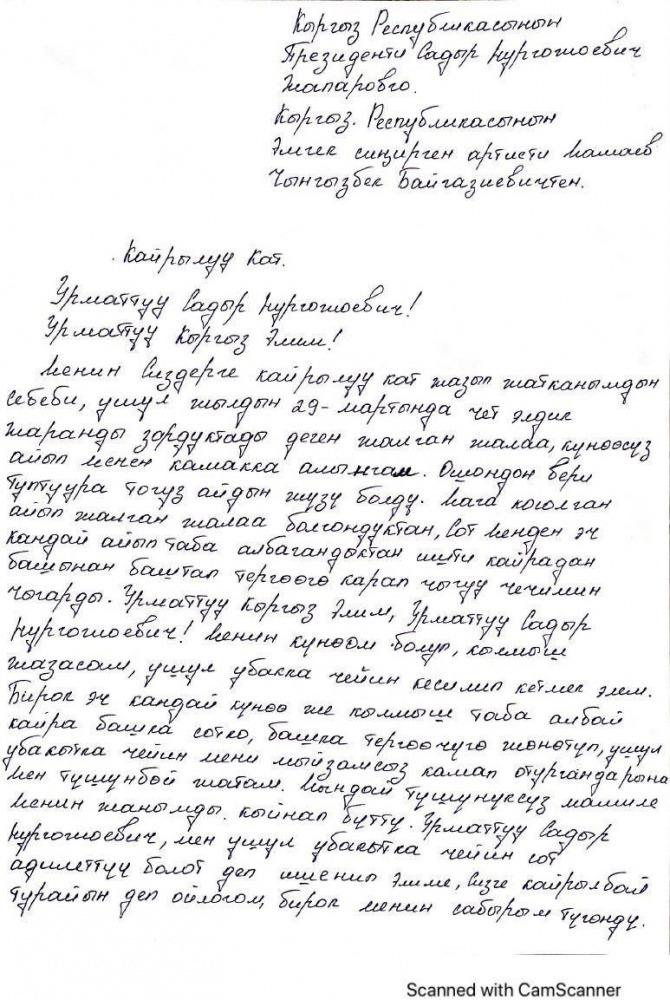 Кыргыз Республикасынын
Президенти Садыр Нургожоевич
Жапаровго.
Кыргыз. Республикасынын
Эмгек сиңирген артисти Мамаев
Чынгызбек Байгазиевичтен.
Кайрылуу кат.
Урматтуу Садыр Нургожоевич!
Урматтуу Кыргыз Элим!
Менин Сиздерге кайрылуу кат жазып жатканымдын
себеби, ушул жылдын 29-мартында чет элдик
жаранды зордуктады деген жалган жалаа, күнөөсүз
айып менен камакка алынгам. Ошондон бери
туптуура тогуз айдын жүзү болду. Мага коюлган
айып жалган жалаа болгондуктан, Сот менден эч
кандай айып таба албагандыктан ишти кайрадан
башынан баштап тергөөгө карап чыгуу чечимин
чыгарды. Урматтуу Кыргыз Элим, Урматтуу Садыр
Нургожоевич! Менин күнөөм болуп, кылмыш
жазасам, ушул убакка чейин кесилип кетмек элем.
Бирок эч кандай күнөө же кылмыш таба албай
кайра башка сотко, башка тергөөчүгө жөнөтүп, ушул
убакытка чейин мени мыйзамсыз камап отургандарына
мен түшүнбөй жатам. Мындай түшүнүксүз мамиле
менин жанымды. кыйнап бүттү. Урматтуу Садыр
Нургожоевич, мен ушул убакытка чейин сот
адилеттүү болот деп ишенип элме, Сизге кайрылбай
турайын деп ойлогом, бирок менин сабырым түгөндү.
Scanned with CamScanner